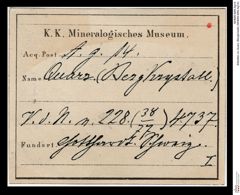 K. K. Mineralogisches Museum.
Acq. Post A. g. 14.
Name Quarz. (Bergkrystall.)
V. d. N. n. 228. (38/77) 4737.
Fundort Gotthardt, Schweiz.
I